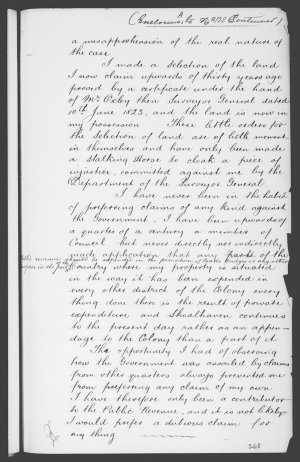 A
(Enclosure to No 128 Continued)
a misapprehension of the real nature of
the case
I made a Selection of the land
I now claim upwards of thirty years ago
proved by a certificate under the hand
of Mr Oxley then Surveyor General dated
10th June 1823, and the land is now in
my possession These little orders for
the Selection of land are of little moment
in themselves and have only been made
a Stalking Horse to cloak a piece of
injustice, committed against me by the
Department of the Surveyor General
I have never been in the habit
of preferring claims of any kind against
the Government. I have been upwards of
a quarter of a century a member of
Council but never directly nor indirectly
made application that any parts of the
country where my property is situated
in the way it has been expended in
every other district of the Colony every
thing done there is the result of private
expenditure and Shoalhaven continues
to the present day rather as an appen-
dage to the Colony than a part of it
The opportunity I had of observing
how the Government was assailed by claims
from other quarters always prevented me
from preferring any claim of my own
I have therefore only been a contributor
to the Public Revenue, and it is not likely
I would prefer a dubious claim for
any thing
263